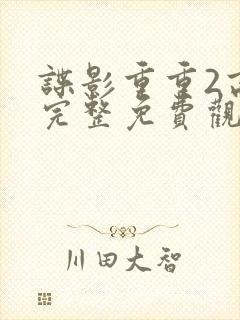 諜影重重2
完整免費觀
川田大智